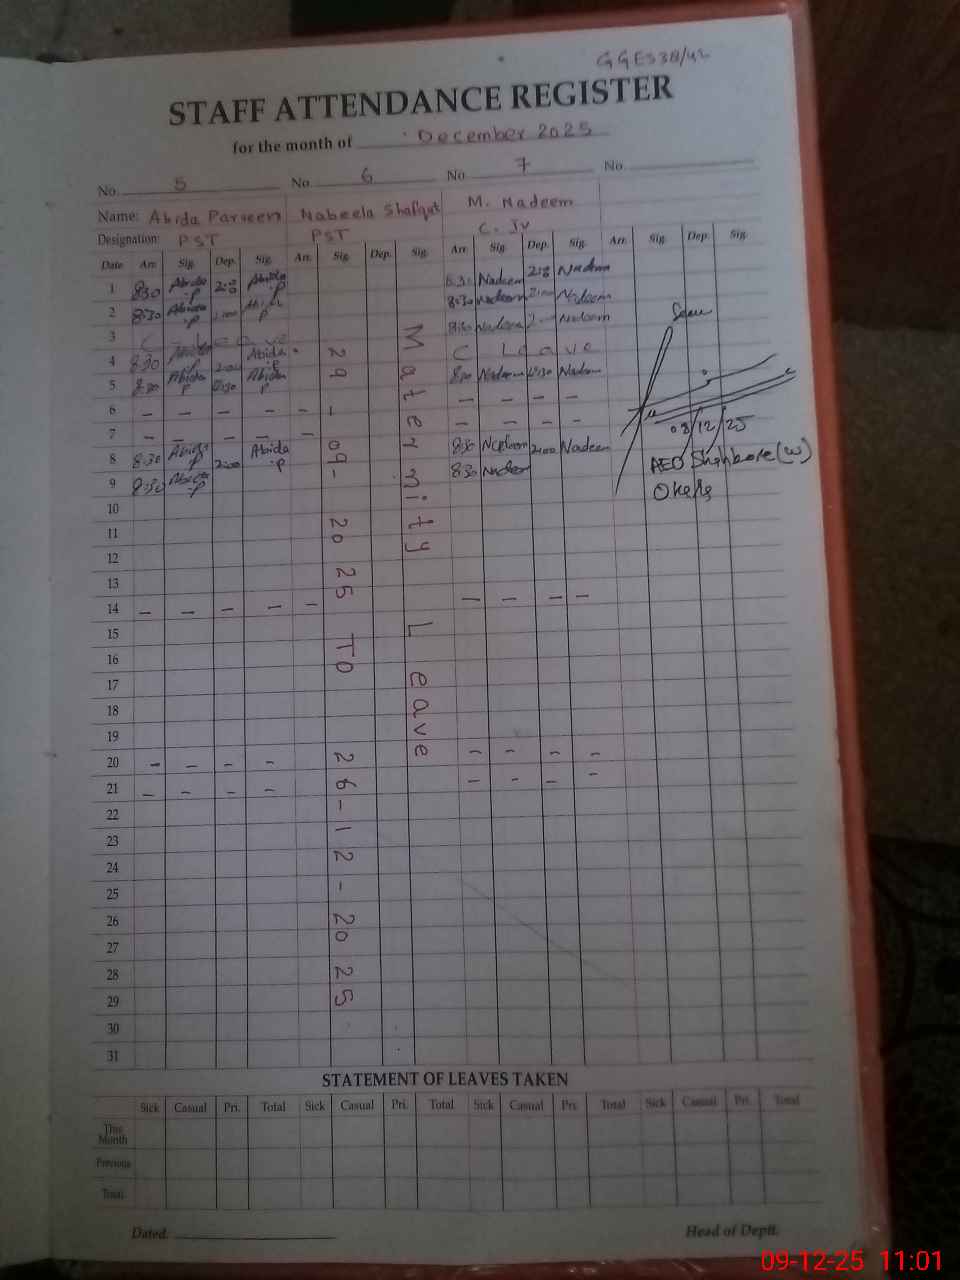 GGES 38/4L
STAFF ATTENDANCE REGISTER
for the month of December 2025
No. 5 No. 6 No. 7 No.
Name: Abida Parveen Nabeela Shafqat M. Nadeem
Designation: PST PST C. IV
Date Arr. Sig. Dep. Sig. Arr. Sig. Dep. Sig. Arr. Sig. Dep. Sig. Arr. Sig. Dep. Sig.
1 8:30 Abida P Abida P 8:30 Nadeem Nadeem
2 8:30 Abida P 2:00 Abida P 8:30 Nadeem 2:00 Nadeem
3 C Leave 8:30 Nadeem 2 Nadeem
4 8:30 2:00 Abida P C Leave
5 8:30 Abida P 12:30 Abida P 8:30 Nadeem 12:30 Nadeem
6 - - - - - - - - -
7 - - - - - - - -
8 8:30 Abida P 2:00 Abida P 8:30 Nadeem 2:00 Nadeem
9 8:30 Abida P 8:30 Nadeem
10
11
12
13
14 - - - - - - - - -
15
16
17
18
19
20 - - - - - - - -
21 - - - - - - - -
22
23
24
25
26
27
28
29
30
31
29-09-2025 TO 26-12-2025
Maternity Leave
08/12/25
AEO (W)
STATEMENT OF LEAVES TAKEN
Sick Casual Pri. Total Sick Casual Pri. Total Sick Casual Pri. Total Sick Casual Pri. Total
This Month
Previous
Total
Dated: Head of Deptt.
09-12-25 11:01